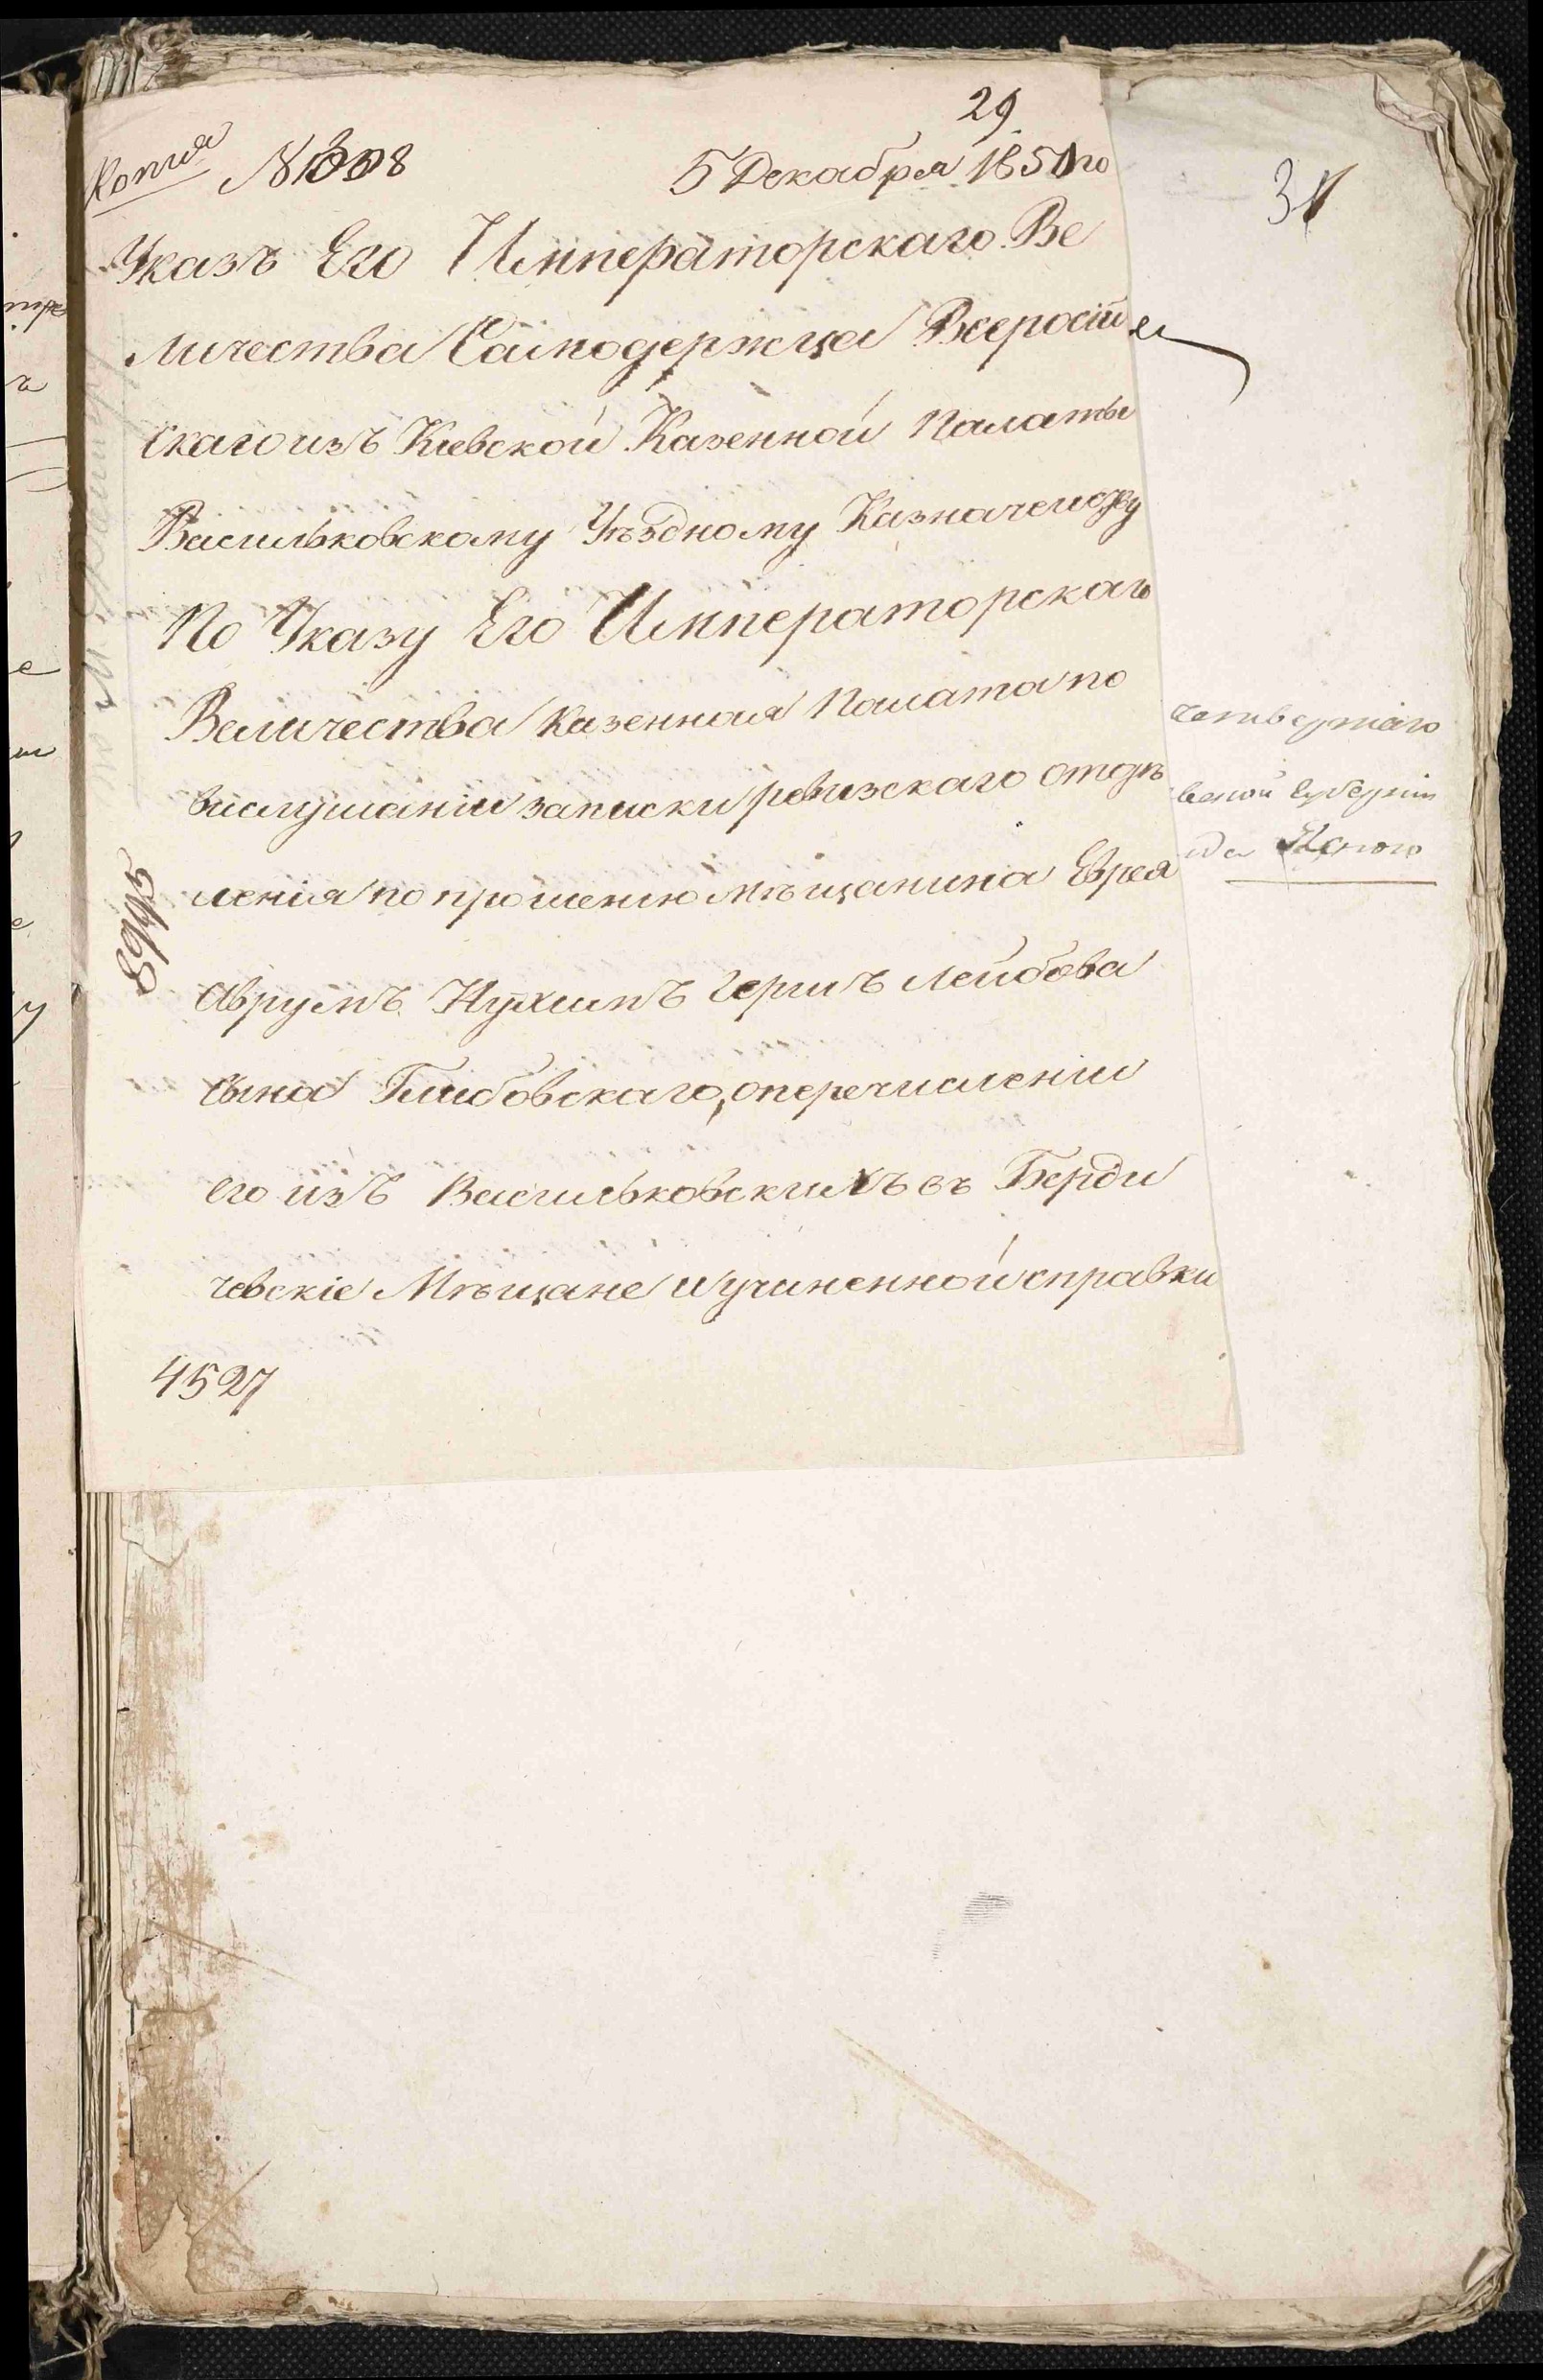 29
Копия № 3008 5 Декабря 1851го
31
Указъ Его Императорскаго Ве
личества Самодержца Всеросій
скаго изъ Кіевской Казенной Палаты
Васильковскому Уѣздному Казначейству
По Указу Его Императорскаго
Величества Казенная Палата по
выслушаніи записки ревизскаго отдѣ
ленія по прошенію мѣщанина Еврея
Аврумъ Нухимъ Гершъ Лейбова
сына Глибовскаго, о перечисленіи
его изъ Васильковскихъ въ Берди
чевскіе Мѣщане и учиненной справки
4527
четвертаго
губерніи